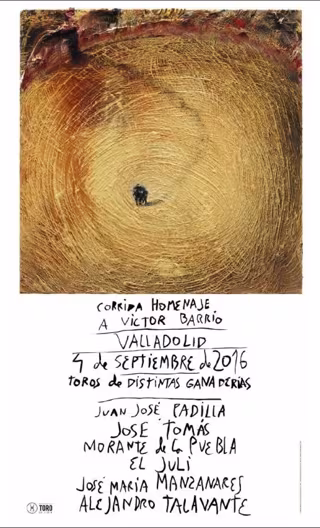 CORRIDA HOMENAJE
A VICTOR BARRIO
VALLADOLID
4 de SEPTIEMBRE de 2016
TOROS de DISTINTAS GANADERIAS
JUAN JOSÉ PADILLA
JOSE TOMÁS
MORANTE de la PUEBLA
EL JULI
JOSÉ MARIA MANZANARES
ALEJANDRO TALAVANTE
TORO